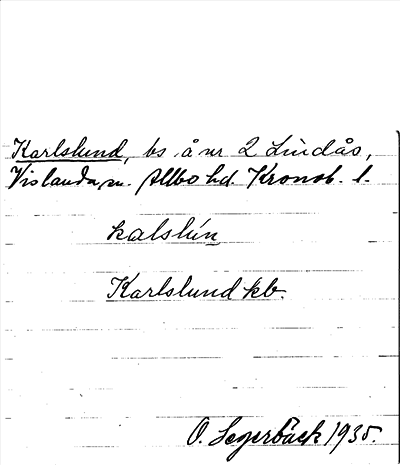 Karlslund, bs å nr 2 Lindås,
Vislanda sn. Allbo hd. Kronob. l.
kalslún
Karlslund kb.
O. Segerbäck 1935.